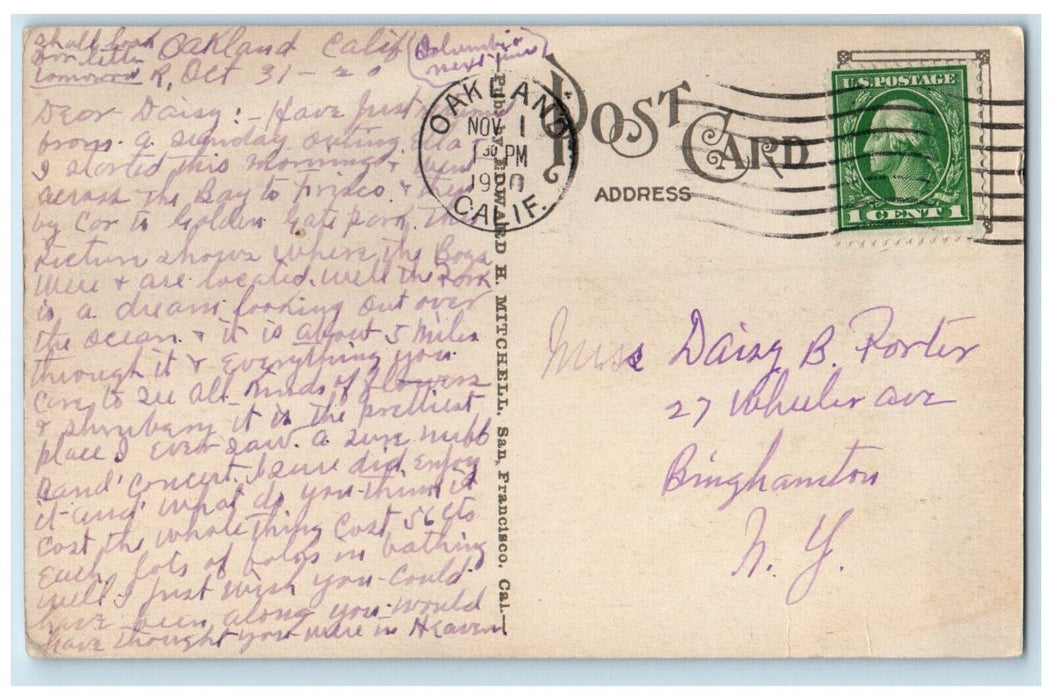 shall look
for letter
tomorrow R,
Oakland Calif
Oct 31-20
(Columbia
next time)
Dear Daisy:- Have Just
from a Sunday outing.
I started this Morning &
across the Bay to Frisco & then
by Car to Golden Gate Park. The
Picture shows where the Boys
were & are located. Well the Park
is a dream looking out over
the ocean & it is about 5 Miles
through it & Everything you
Care to see All Kinds of flowers
& shrubery it is the prettiest
place I Ever saw. a sure nuff
Band Concert. I sure did Enjoy
it and what do you think it
Cost the whole thing Cost 56 cts
Each, lots of folks in bathing
well I just wish you could
have been along you would
have thought you were in Heaven
Pub. by EDWARD H. MITCHELL, San Francisco, Cal.
OAKLAND
NOV 1
30 PM
1920
CALIF.
POST CARD
ADDRESS
U.S. POSTAGE
1 CENT 1
Miss Daisy B. Porter
27 Wheeler ave
Binghamton
N. Y.